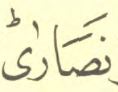 نَصَارٰى